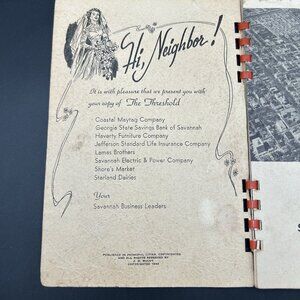 Hi, Neighbor!
It is with pleasure that we present you with
your copy of The Threshold
Coastal Maytag Company
Georgia State Savings Bank of Savannah
Haverty Furniture Company
Jefferson Standard Life Insurance Company
Lamas Brothers
Savannah Electric & Power Company
Shore's Market
Starland Dairies
Your
Savannah Business Leaders
PUBLISHED IN PRINCIPAL CITIES, COPYRIGHTED
AND ALL RIGHTS RESERVED BY
COPYRIGHTED
S